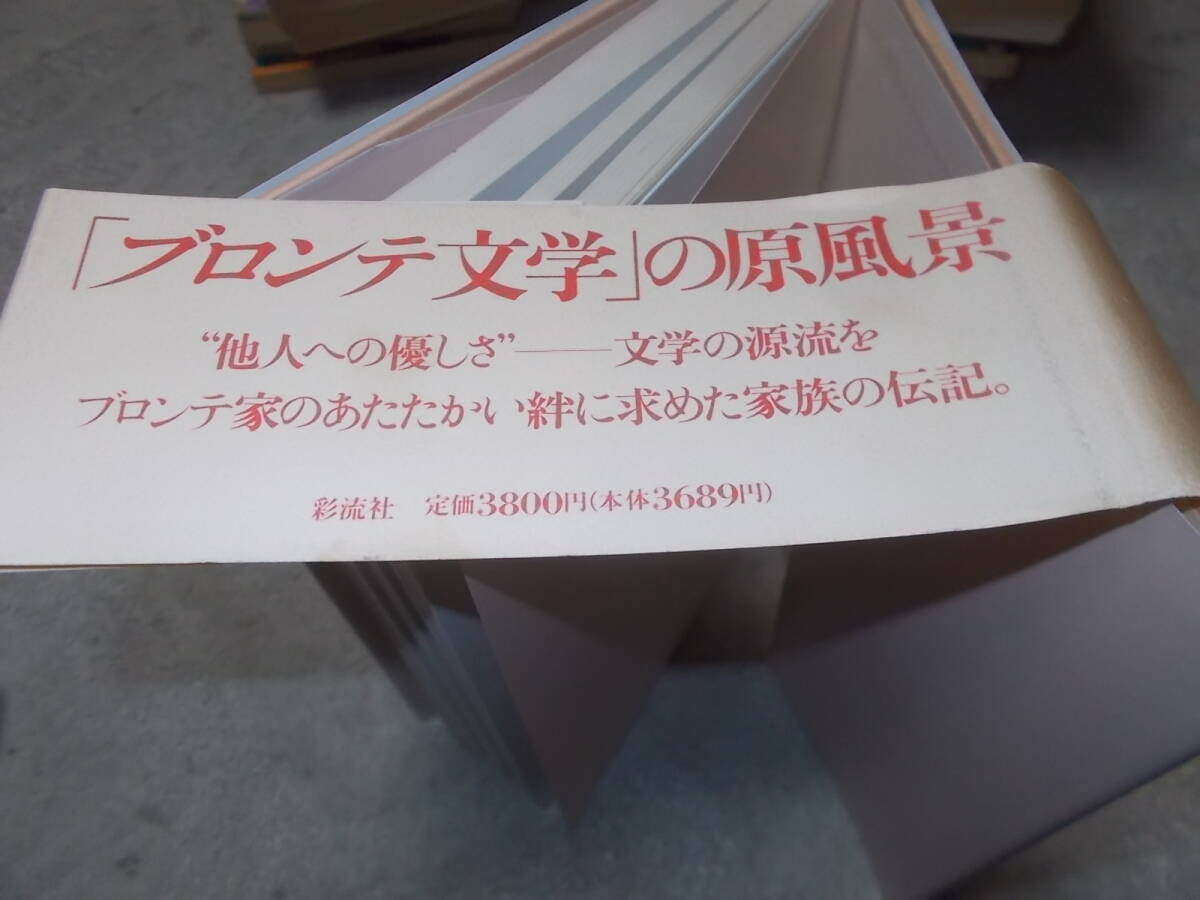 「ブロンテ文学」の原風景
“他人への優しさ”――文学の源流を
ブロンテ家のあたたかい絆に求めた家族の伝記。
彩流社　定価3800円(本体3689円)